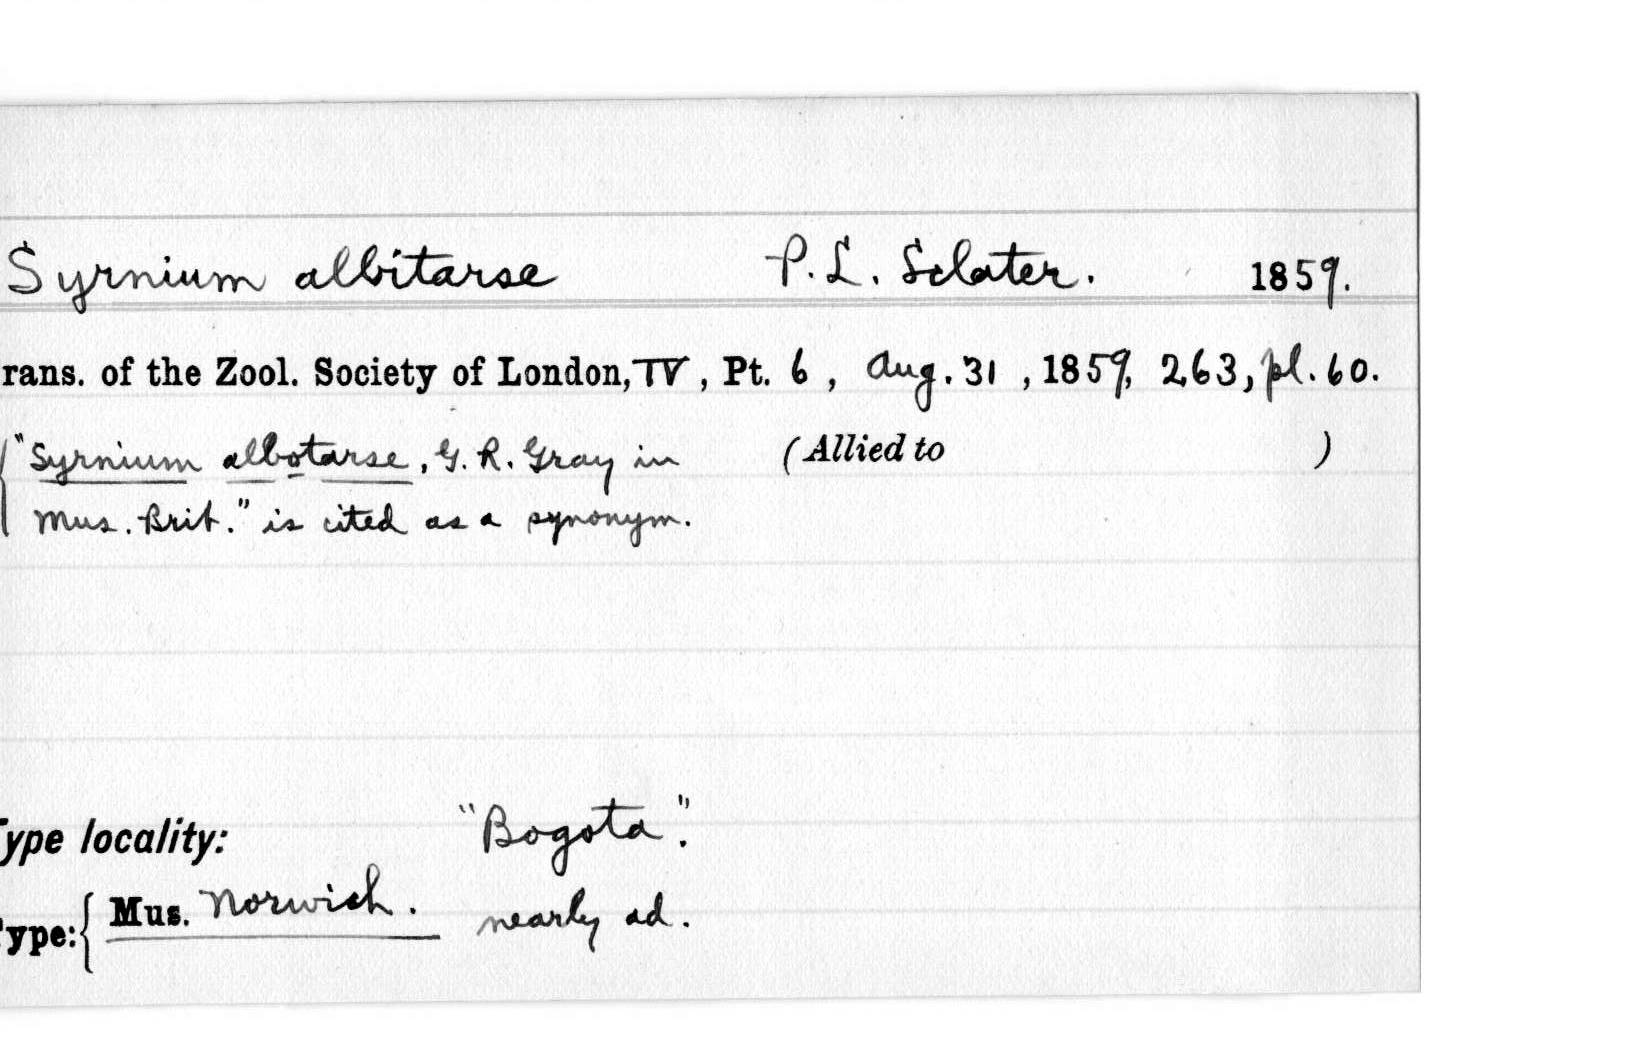 Syrnium albitarse P. L. Sclater. 1859.
rans. of the Zool. Society of London, IV, Pt. 6, Aug. 31, 1859, 263, pl. 60.
"Syrnium albotarse, G. R. Gray in (Allied to )
Mus. Brit." is cited as a synonym.
Type locality: "Bogota".
Type: { Mus. Norwich. nearly ad.